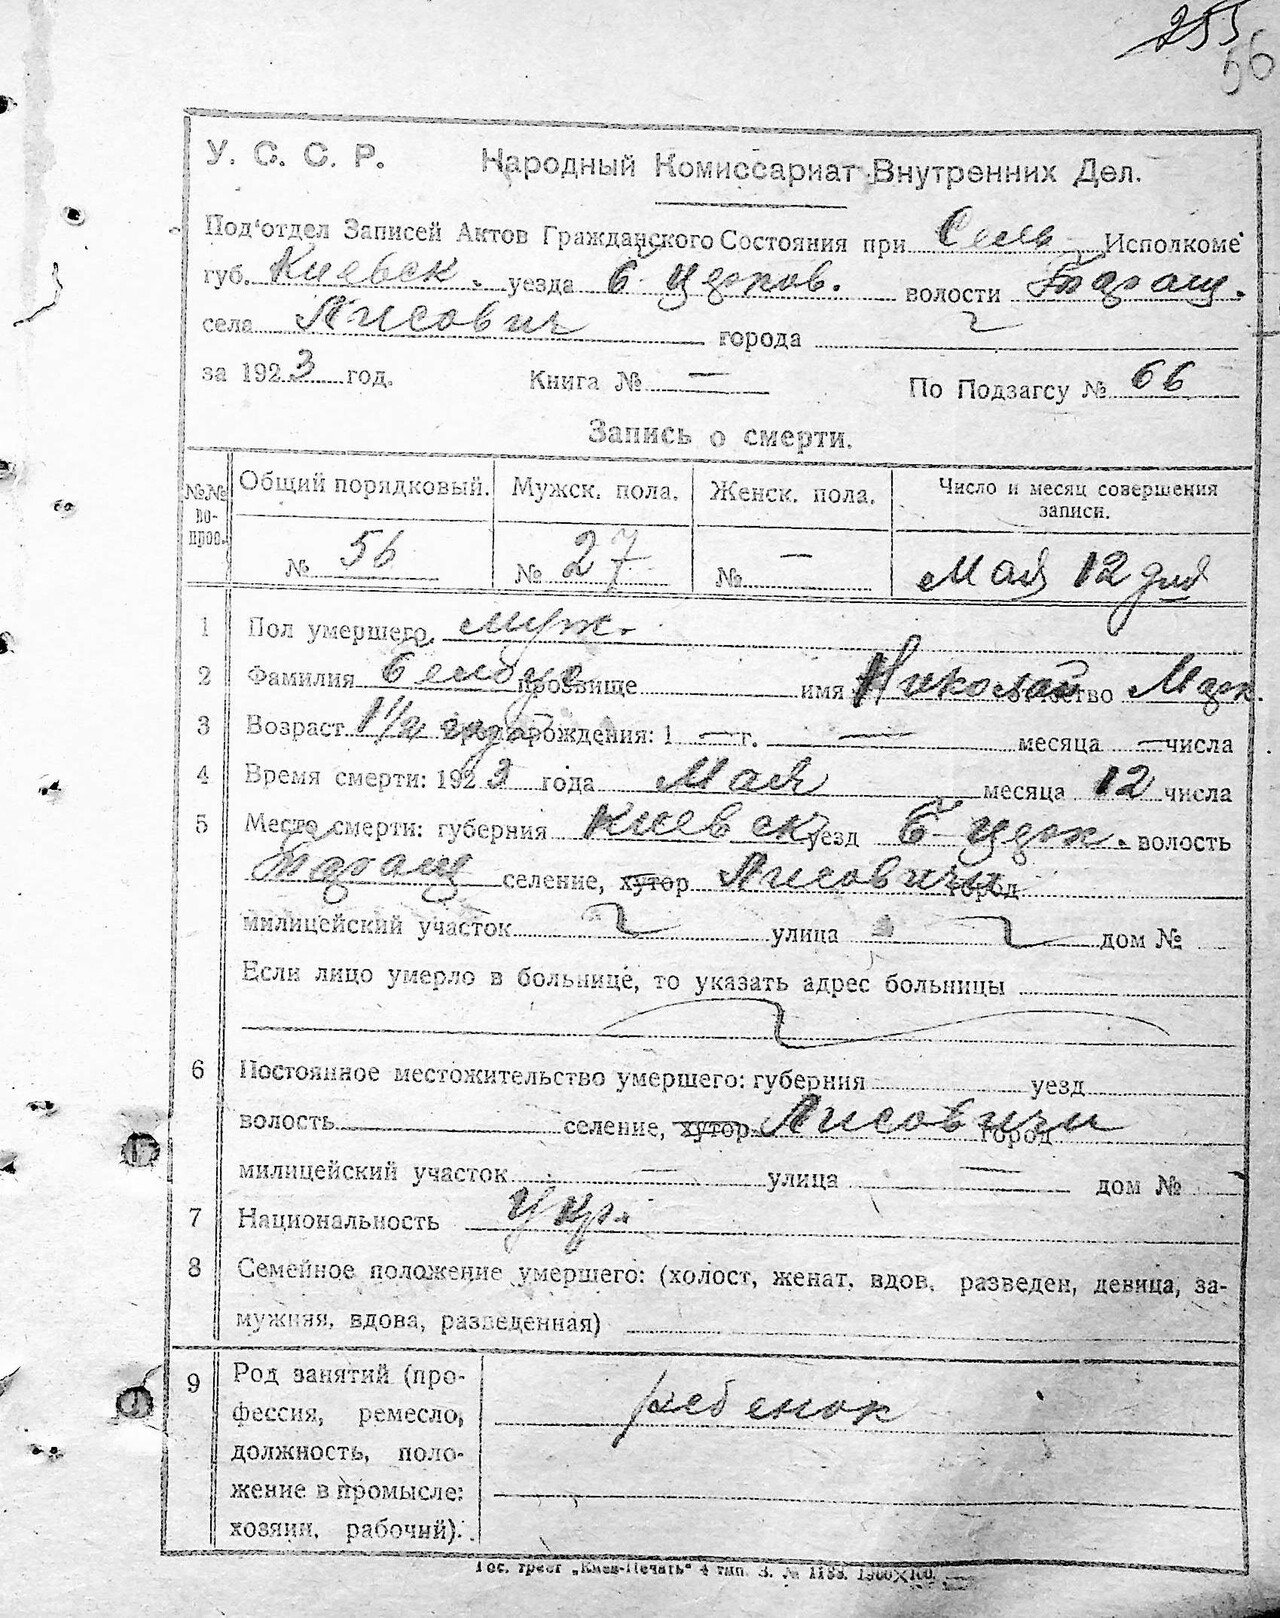 255
56
У. С. С. Р. Народный Комиссариат Внутренних Дел.
Под'отдел Записей Актов Гражданского Состояния при Сель Исполкоме
губ. Киевск. уезда Б Церков. волости Таращ.
села Лисович города
за 1923 год. Книга № — По Подзагсу № 66
Запись о смерти.
№№ вопрос. Общий порядковый. Мужск. пола. Женск. пола. Число и месяц совершения записи.
№ 56 № 27 № — Мая 12 дня
1 Пол умершего муж.
2 Фамилия прозвище имя Николай отчество Марк.
3 Возраст 1 1/2 года рождения: 1 — г. — месяца — числа
4 Время смерти: 1923 года Мая месяца 12 числа
5 Место смерти: губерния Киевск уезд Б Церк. волость
Таращ селение, хутор Лисовичи город
милицейский участок улица дом №
Если лицо умерло в больнице, то указать адрес больницы
6 Постоянное местожительство умершего: губерния уезд
волость селение, хутор Лисовичи город
милицейский участок — улица — дом №
7 Национальность Укр.
8 Семейное положение умершего: (холост, женат, вдов, разведен, девица, за-
мужняя, вдова, разведенная)
9 Род занятий (про-
фессия, ремесло, ребенок
должность, поло-
жение в промысле:
хозяин, рабочий).
Гос. трест „Киев-Печать" 4 тип. З. № 1188. 1900×100.